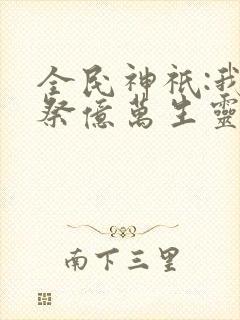 全民神祇:我
祭億萬生靈
南下三里